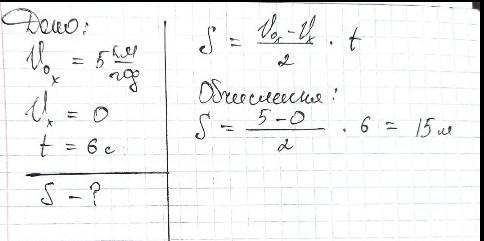 Дано:
V₀ₓ = 5 км/год
Vₓ = 0
t = 6 с
S - ?
S = (V₀ₓ - Vₓ)/2 · t
Обчислення:
S = (5 - 0)/2 · 6 = 15 м